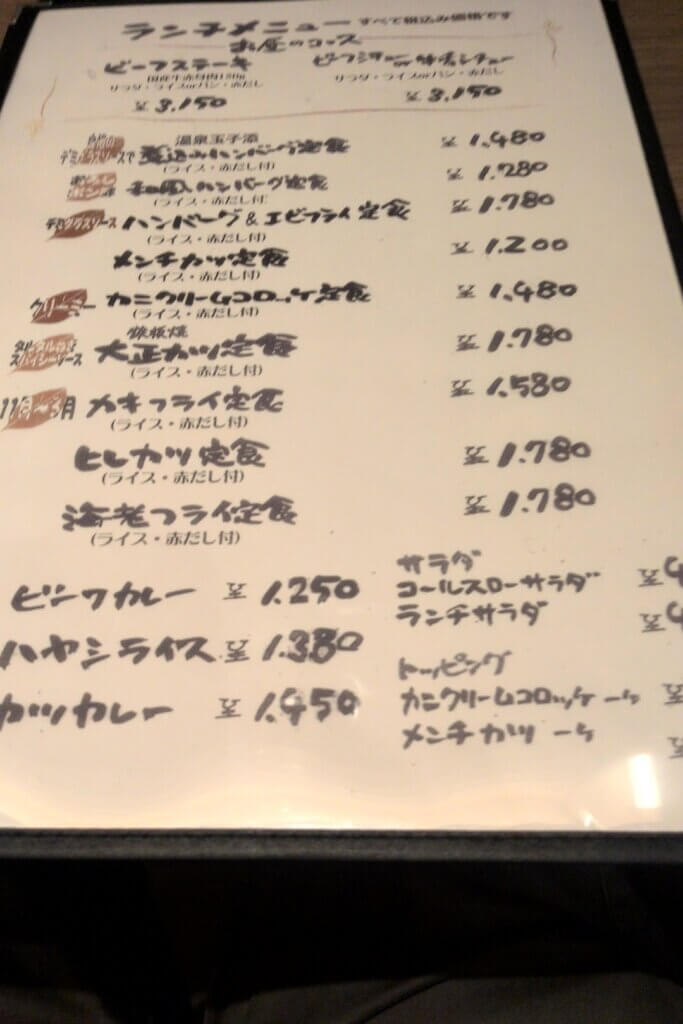 ランチメニュー すべて税込み価格です
お昼のコース
ビーフステーキ
国産牛赤身肉120g
サラダ・ライスorパン・赤だし
¥3,150
ビーフシチュー or タンシチュー
サラダ・ライスorパン・赤だし
¥3,150
温泉玉子添
デミグラスソースで 煮込みハンバーグ定食 ¥1,480
(ライス・赤だし付)
和風ハンバーグ定食 ¥1,280
(ライス・赤だし付)
デミグラスソース ハンバーグ&エビフライ定食 ¥1,780
(ライス・赤だし付)
メンチカツ定食 ¥1,200
(ライス・赤だし付)
クリーミー カニクリームコロッケ定食 ¥1,480
(ライス・赤だし付)
鉄板焼
スパイシーソース 大正カツ定食 ¥1,780
(ライス・赤だし付)
カキフライ定食 ¥1,580
(ライス・赤だし付)
ヒレカツ定食 ¥1,780
(ライス・赤だし付)
海老フライ定食 ¥1,780
(ライス・赤だし付)
ビーフカレー ¥1,250
ハヤシライス ¥1,380
カツカレー ¥1,450
サラダ
コールスローサラダ ¥4
ランチサラダ ¥4
トッピング
カニクリームコロッケ 一ケ ¥
メンチカツ 一ケ ¥